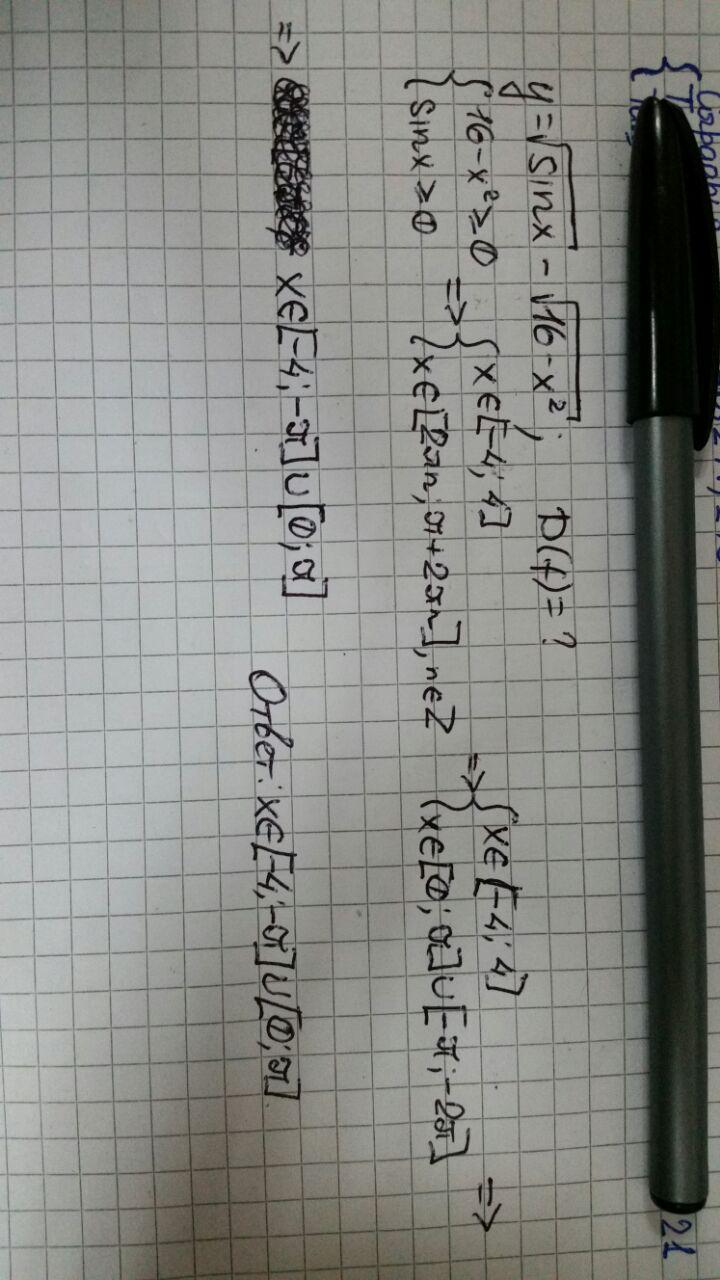 y=√sinx - √16-x²; D(f)=?
{16-x²≥0 => {x∈[-4; 4] => {x∈[-4; 4] =>
{sinx≥0 {x∈[2πn; π+2πn], n∈Z {x∈[0; π]∪[-π; -2π]
=> x∈[-4; -π]∪[0; π]
Ответ: x∈[-4; -π]∪[0; π]
21